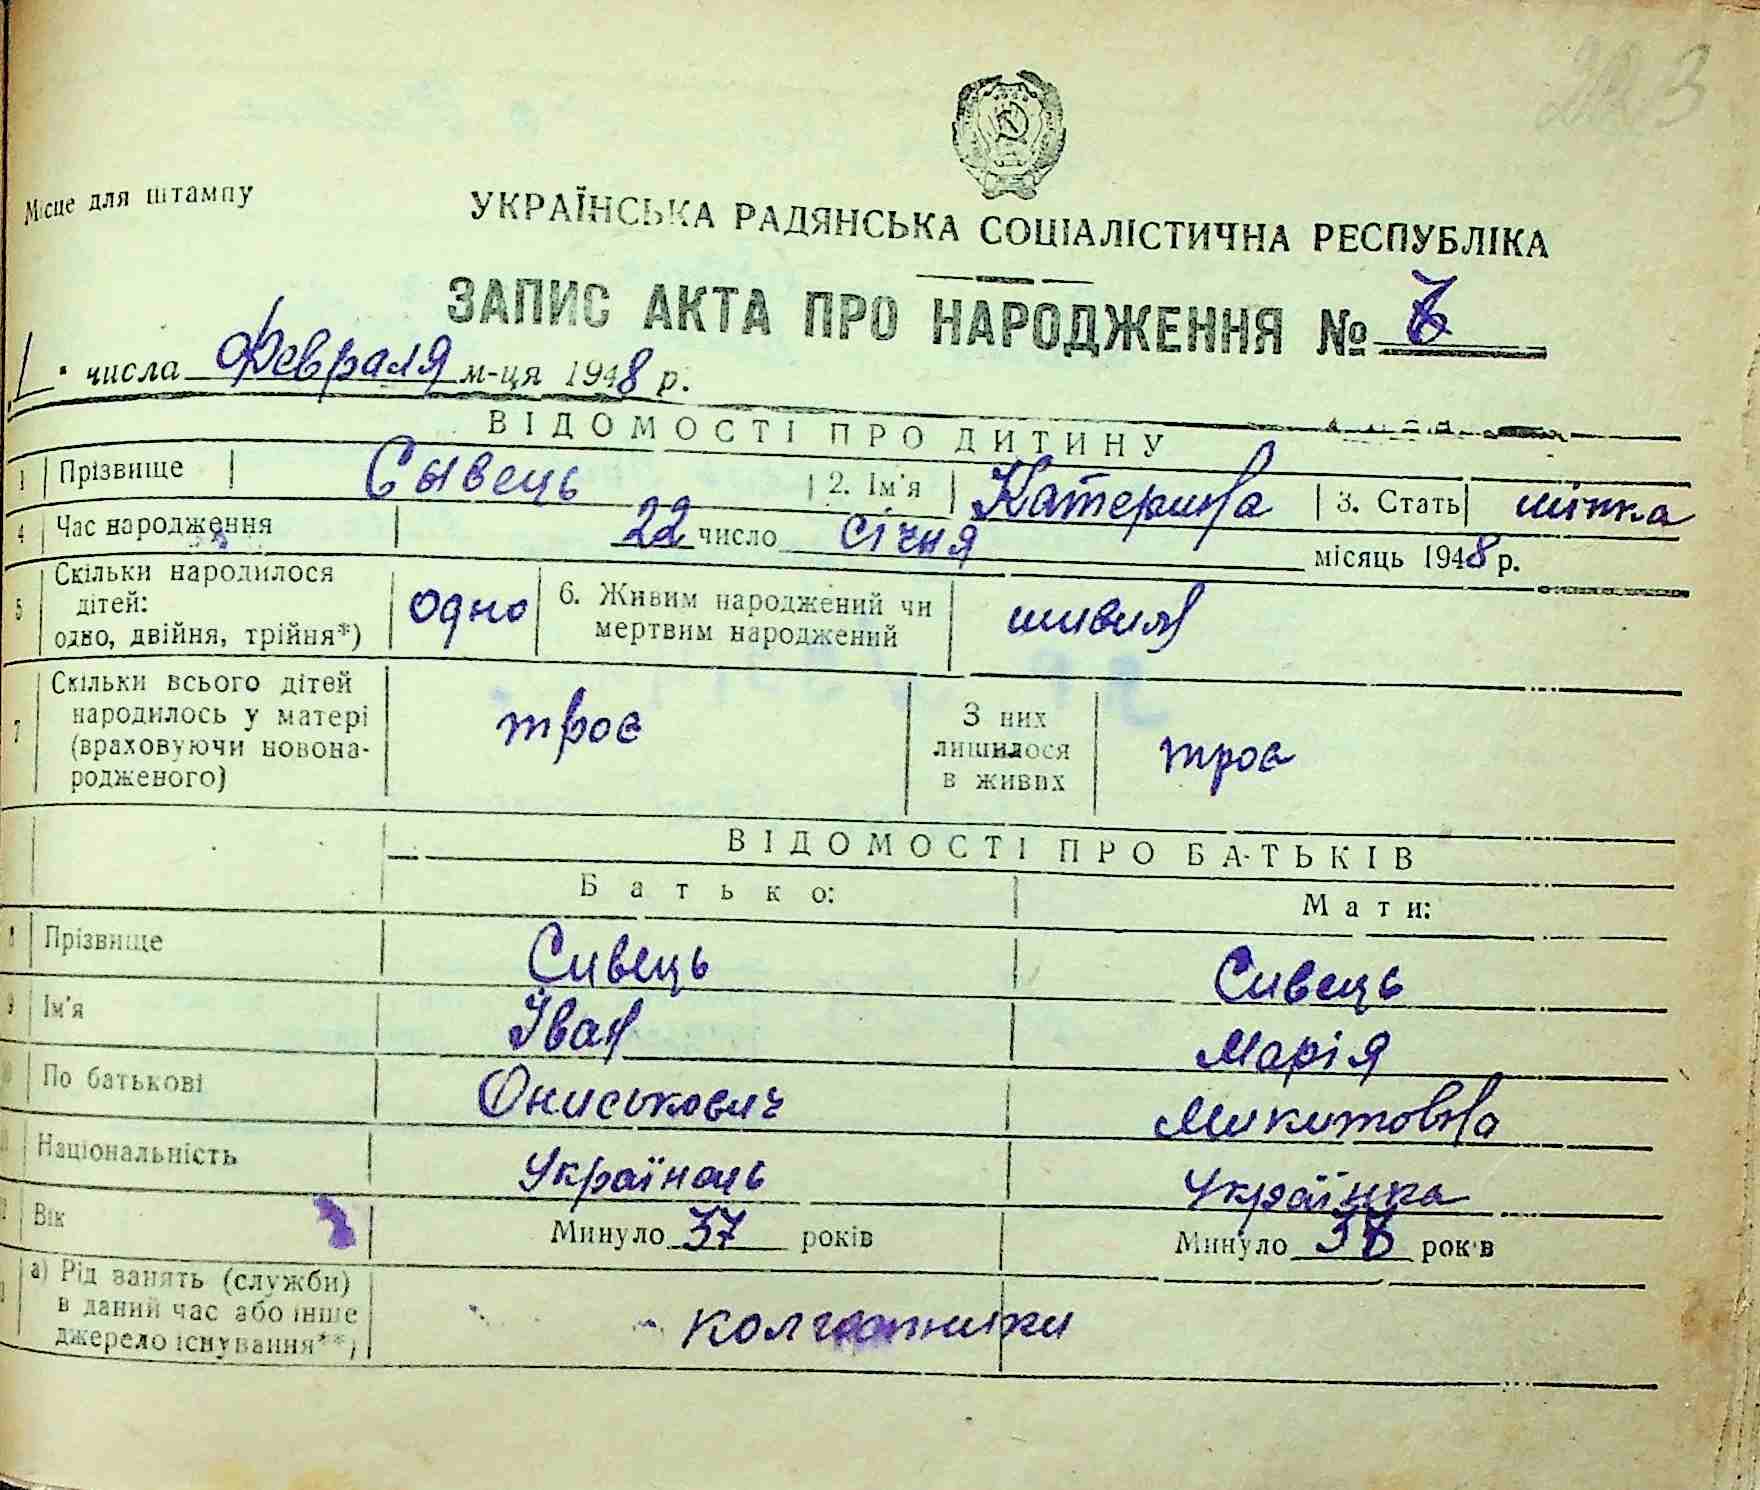 3
Місце для штампу
УКРАЇНСЬКА РАДЯНСЬКА СОЦІАЛІСТИЧНА РЕСПУБЛІКА
ЗАПИС АКТА ПРО НАРОДЖЕННЯ №
1 числа Февраля м-ця 1948 р.
ВІДОМОСТІ ПРО ДИТИНУ
1 Прізвище Сывець 2. Ім'я Катерина 3. Стать жінка
4 Час народження 22 число січня місяць 1948 р.
5 Скільки народилося дітей: одно, двійня, трійня*) одно 6. Живим народжений чи мертвим народжений живим
7 Скільки всього дітей народилось у матері (враховуючи новонародженого) троє З них лишилося в живих троє
ВІДОМОСТІ ПРО БАТЬКІВ
Батько: Мати:
8 Прізвище Сивець Сивець
9 Ім'я Іван Марія
10 По батькові Ониськович Микитовна
Національність Українець Українка
Вік Минуло 37 років Минуло років
а) Рід занять (служби) в даний час або інше джерело існування**) колгоспники